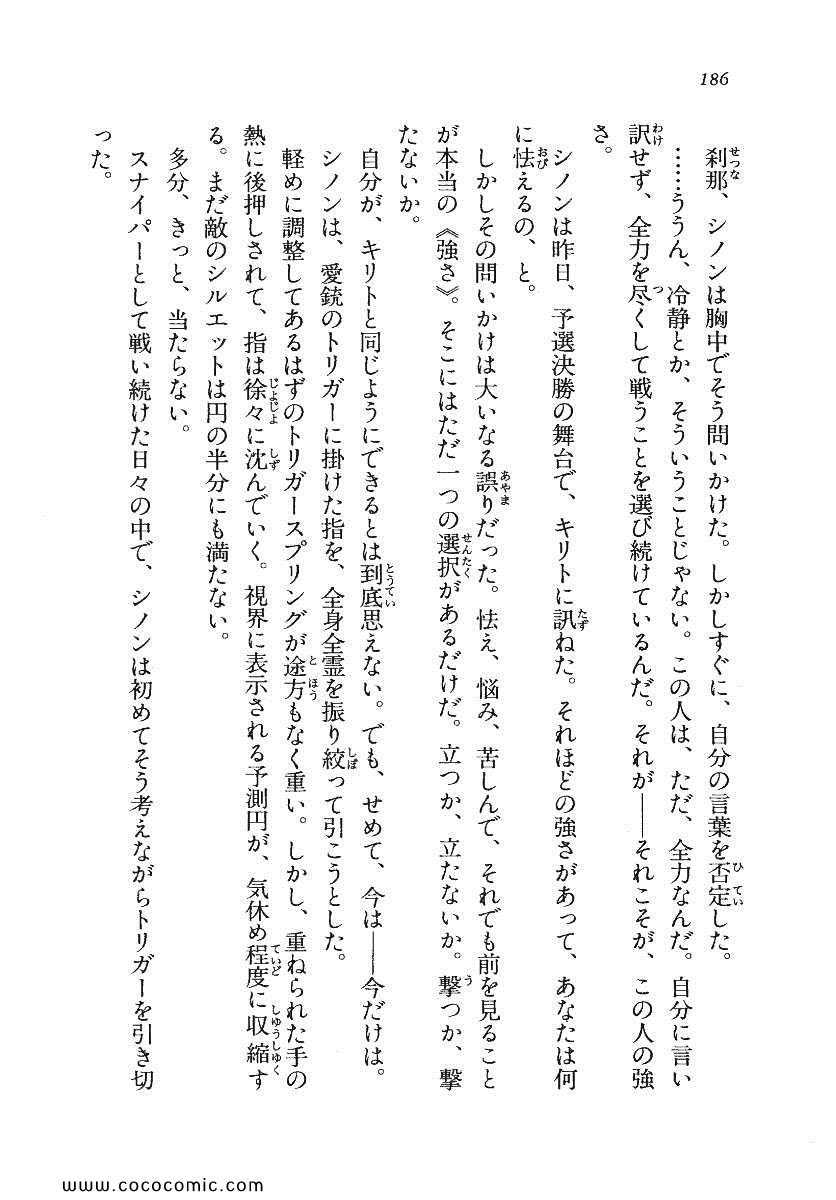 186
刹那、シノンは胸中でそう問いかけた。しかしすぐに、自分の言葉を否定した。
……ううん、冷静とか、そういうことじゃない。この人は、ただ、全力なんだ。自分に言い
訳せず、全力を尽くして戦うことを選び続けているんだ。それが――それこそが、この人の強
さ。
シノンは昨日、予選決勝の舞台で、キリトに訊ねた。それほどの強さがあって、あなたは何
に怯えるの、と。
しかしその問いかけは大いなる誤りだった。怯え、悩み、苦しんで、それでも前を見ること
が本当の《強さ》。そこにはただ一つの選択があるだけだ。立つか、立たないか。撃つか、撃
たないか。
自分が、キリトと同じようにできるとは到底思えない。でも、せめて、今は――今だけは。
シノンは、愛銃のトリガーに掛けた指を、全身全霊を振り絞って引こうとした。
軽めに調整してあるはずのトリガースプリングが途方もなく重い。しかし、重ねられた手の
熱に後押しされて、指は徐々に沈んでいく。視界に表示される予測円が、気休め程度に収縮す
る。まだ敵のシルエットは円の半分にも満たない。
多分、きっと、当たらない。
スナイパーとして戦い続けた日々の中で、シノンは初めてそう考えながらトリガーを引き切
った。
www.cococomic.com